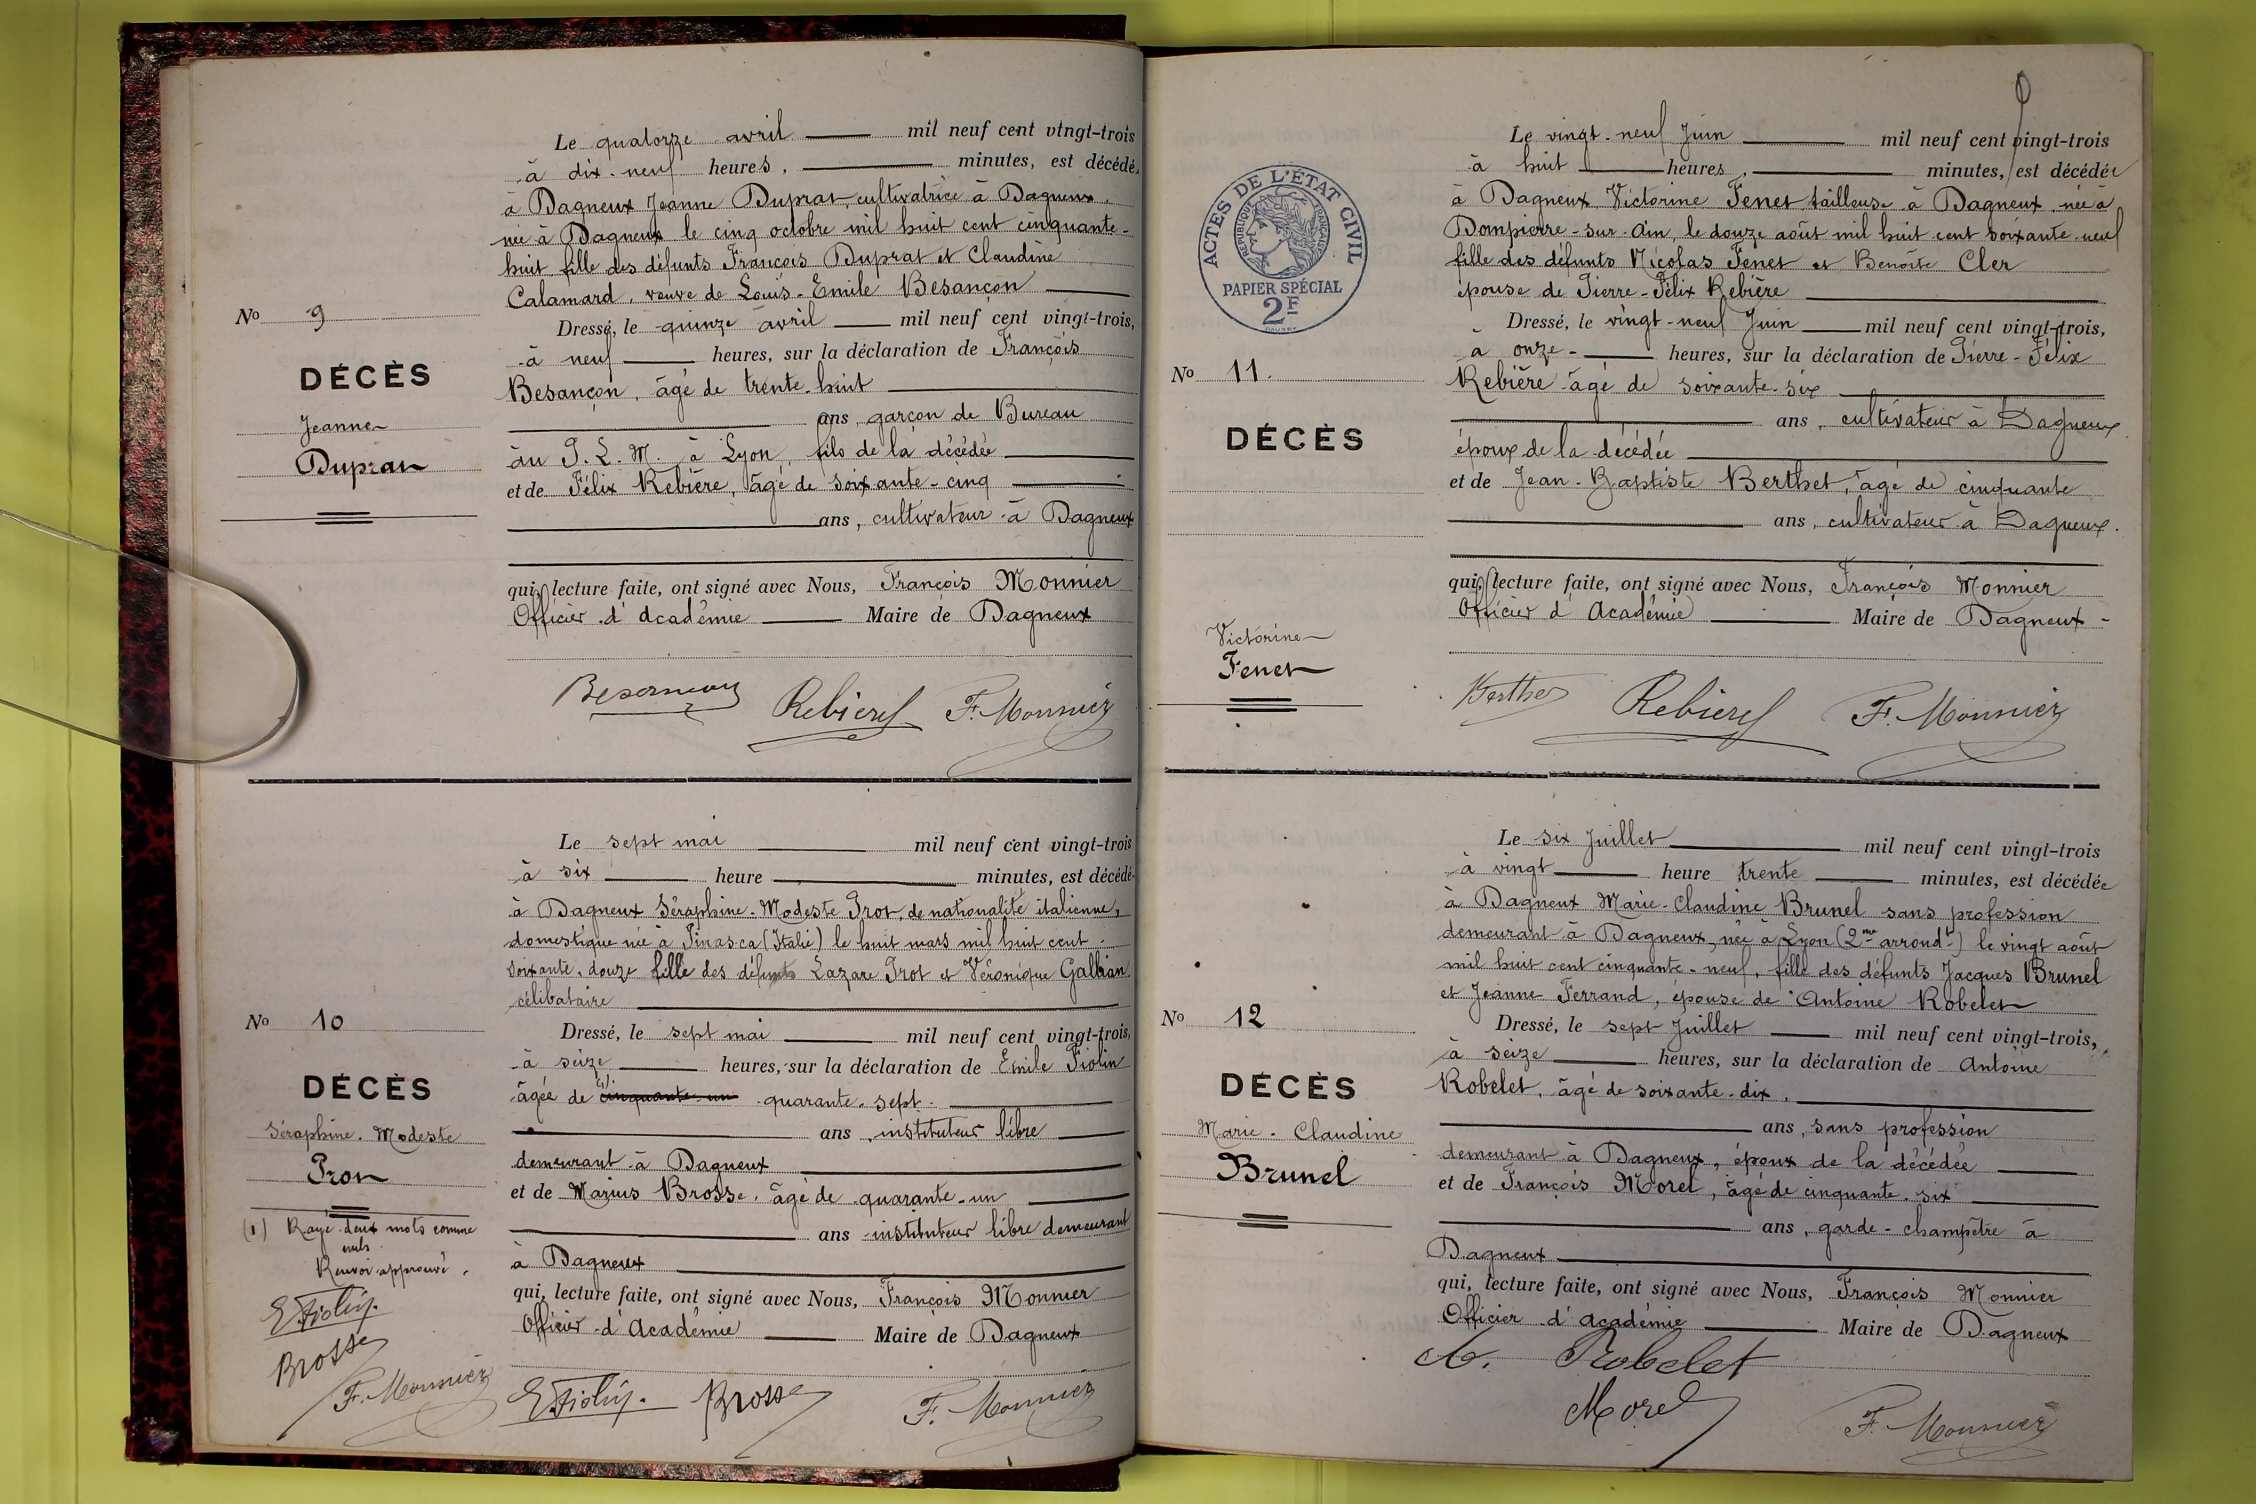 Le quatorze avril mil neuf cent vingt-trois
à dix-neuf heures, minutes, est décédé
à Dagneux Jeanne Duprat, cultivatrice à Dagneux.
née à Dagneux le cinq octobre mil huit cent cinquante-
huit fille des défunts François Duprat et Claudine
Calamard, veuve de Louis-Emile Besançon
No 9
DÉCÈS
Jeanne
Duprat
Dressé, le quinze avril mil neuf cent vingt-trois,
à neuf heures, sur la déclaration de François
Besançon, âgé de trente-huit
ans, garçon de Bureau
au P. L. M. à Lyon, fils de la décédée
et de Félix Rebière, âgé de soixante-cinq
ans, cultivateur à Dagneux
qui, lecture faite, ont signé avec Nous, François Monnier
Officier d'académie Maire de Dagneux
Besançon Rebière F. Monnier
Le sept mai mil neuf cent vingt-trois
à six heure minutes, est décédé
à Dagneux Séraphine-Modeste Prot, de nationalité italienne,
domestique née à Pinasca (Italie) le huit mars mil huit cent
soixante-douze fille des défunts Lazare Prot et Véronique Gallian
célibataire
No 10
DÉCÈS
Séraphine-Modeste
Prot
(1) Rayé deux mots comme
nuls.
Renvoi approuvé.
E. Fiolin.
Brosse
F. Monnier
Dressé, le sept mai mil neuf cent vingt-trois,
à seize heures, sur la déclaration de Emile Fiolin
âgée de (1) cinquante-un quarante-sept
ans, instituteur libre
demeurant à Dagneux
et de Marius Brosse, âgé de quarante-un
ans instituteur libre demeurant
à Dagneux
qui, lecture faite, ont signé avec Nous, François Monnier
Officier d'Académie Maire de Dagneux
E. Fiolin. Brosse F. Monnier
Le vingt-neuf Juin mil neuf cent vingt-trois
à huit heures, minutes, est décédée
à Dagneux Victorine Fenet tailleuse à Dagneux née à
Dompierre-sur-Ain, le douze août mil huit cent soixante-neuf
fille des défunts Nicolas Fenet et Benoîte Cler
épouse de Pierre-Félix Rebière
ACTES DE L'ÉTAT CIVIL
RÉPUBLIQUE FRANÇAISE
PAPIER SPÉCIAL
2F
No 11.
DÉCÈS
Victorine
Fenet
Dressé, le vingt-neuf Juin mil neuf cent vingt-trois,
à onze heures, sur la déclaration de Pierre-Félix
Rebière âgé de soixante-six
ans, cultivateur à Dagneux
époux de la décédée
et de Jean-Baptiste Berthet, âgé de cinquante
ans, cultivateur à Dagneux.
qui, lecture faite, ont signé avec Nous, François Monnier
Officier d'Académie Maire de Dagneux
Berthet Rebière F. Monnier
Le six Juillet mil neuf cent vingt-trois
à vingt heure trente minutes, est décédée
à Dagneux Marie-Claudine Brunel sans profession
demeurant à Dagneux, née à Lyon (2me arrondt) le vingt août
mil huit cent cinquante-neuf, fille des défunts Jacques Brunel
et Jeanne Ferrand, épouse de Antoine Robelet
No 12
DÉCÈS
Marie-Claudine
Brunel
Dressé, le sept Juillet mil neuf cent vingt-trois,
à seize heures, sur la déclaration de Antoine
Robelet, âgé de soixante-dix,
ans, sans profession
demeurant à Dagneux, époux de la décédée
et de François Morel, âgé de cinquante-six
ans, garde-champêtre à
Dagneux
qui, lecture faite, ont signé avec Nous, François Monnier
Officier d'académie Maire de Dagneux
A. Robelet
Morel F. Monnier